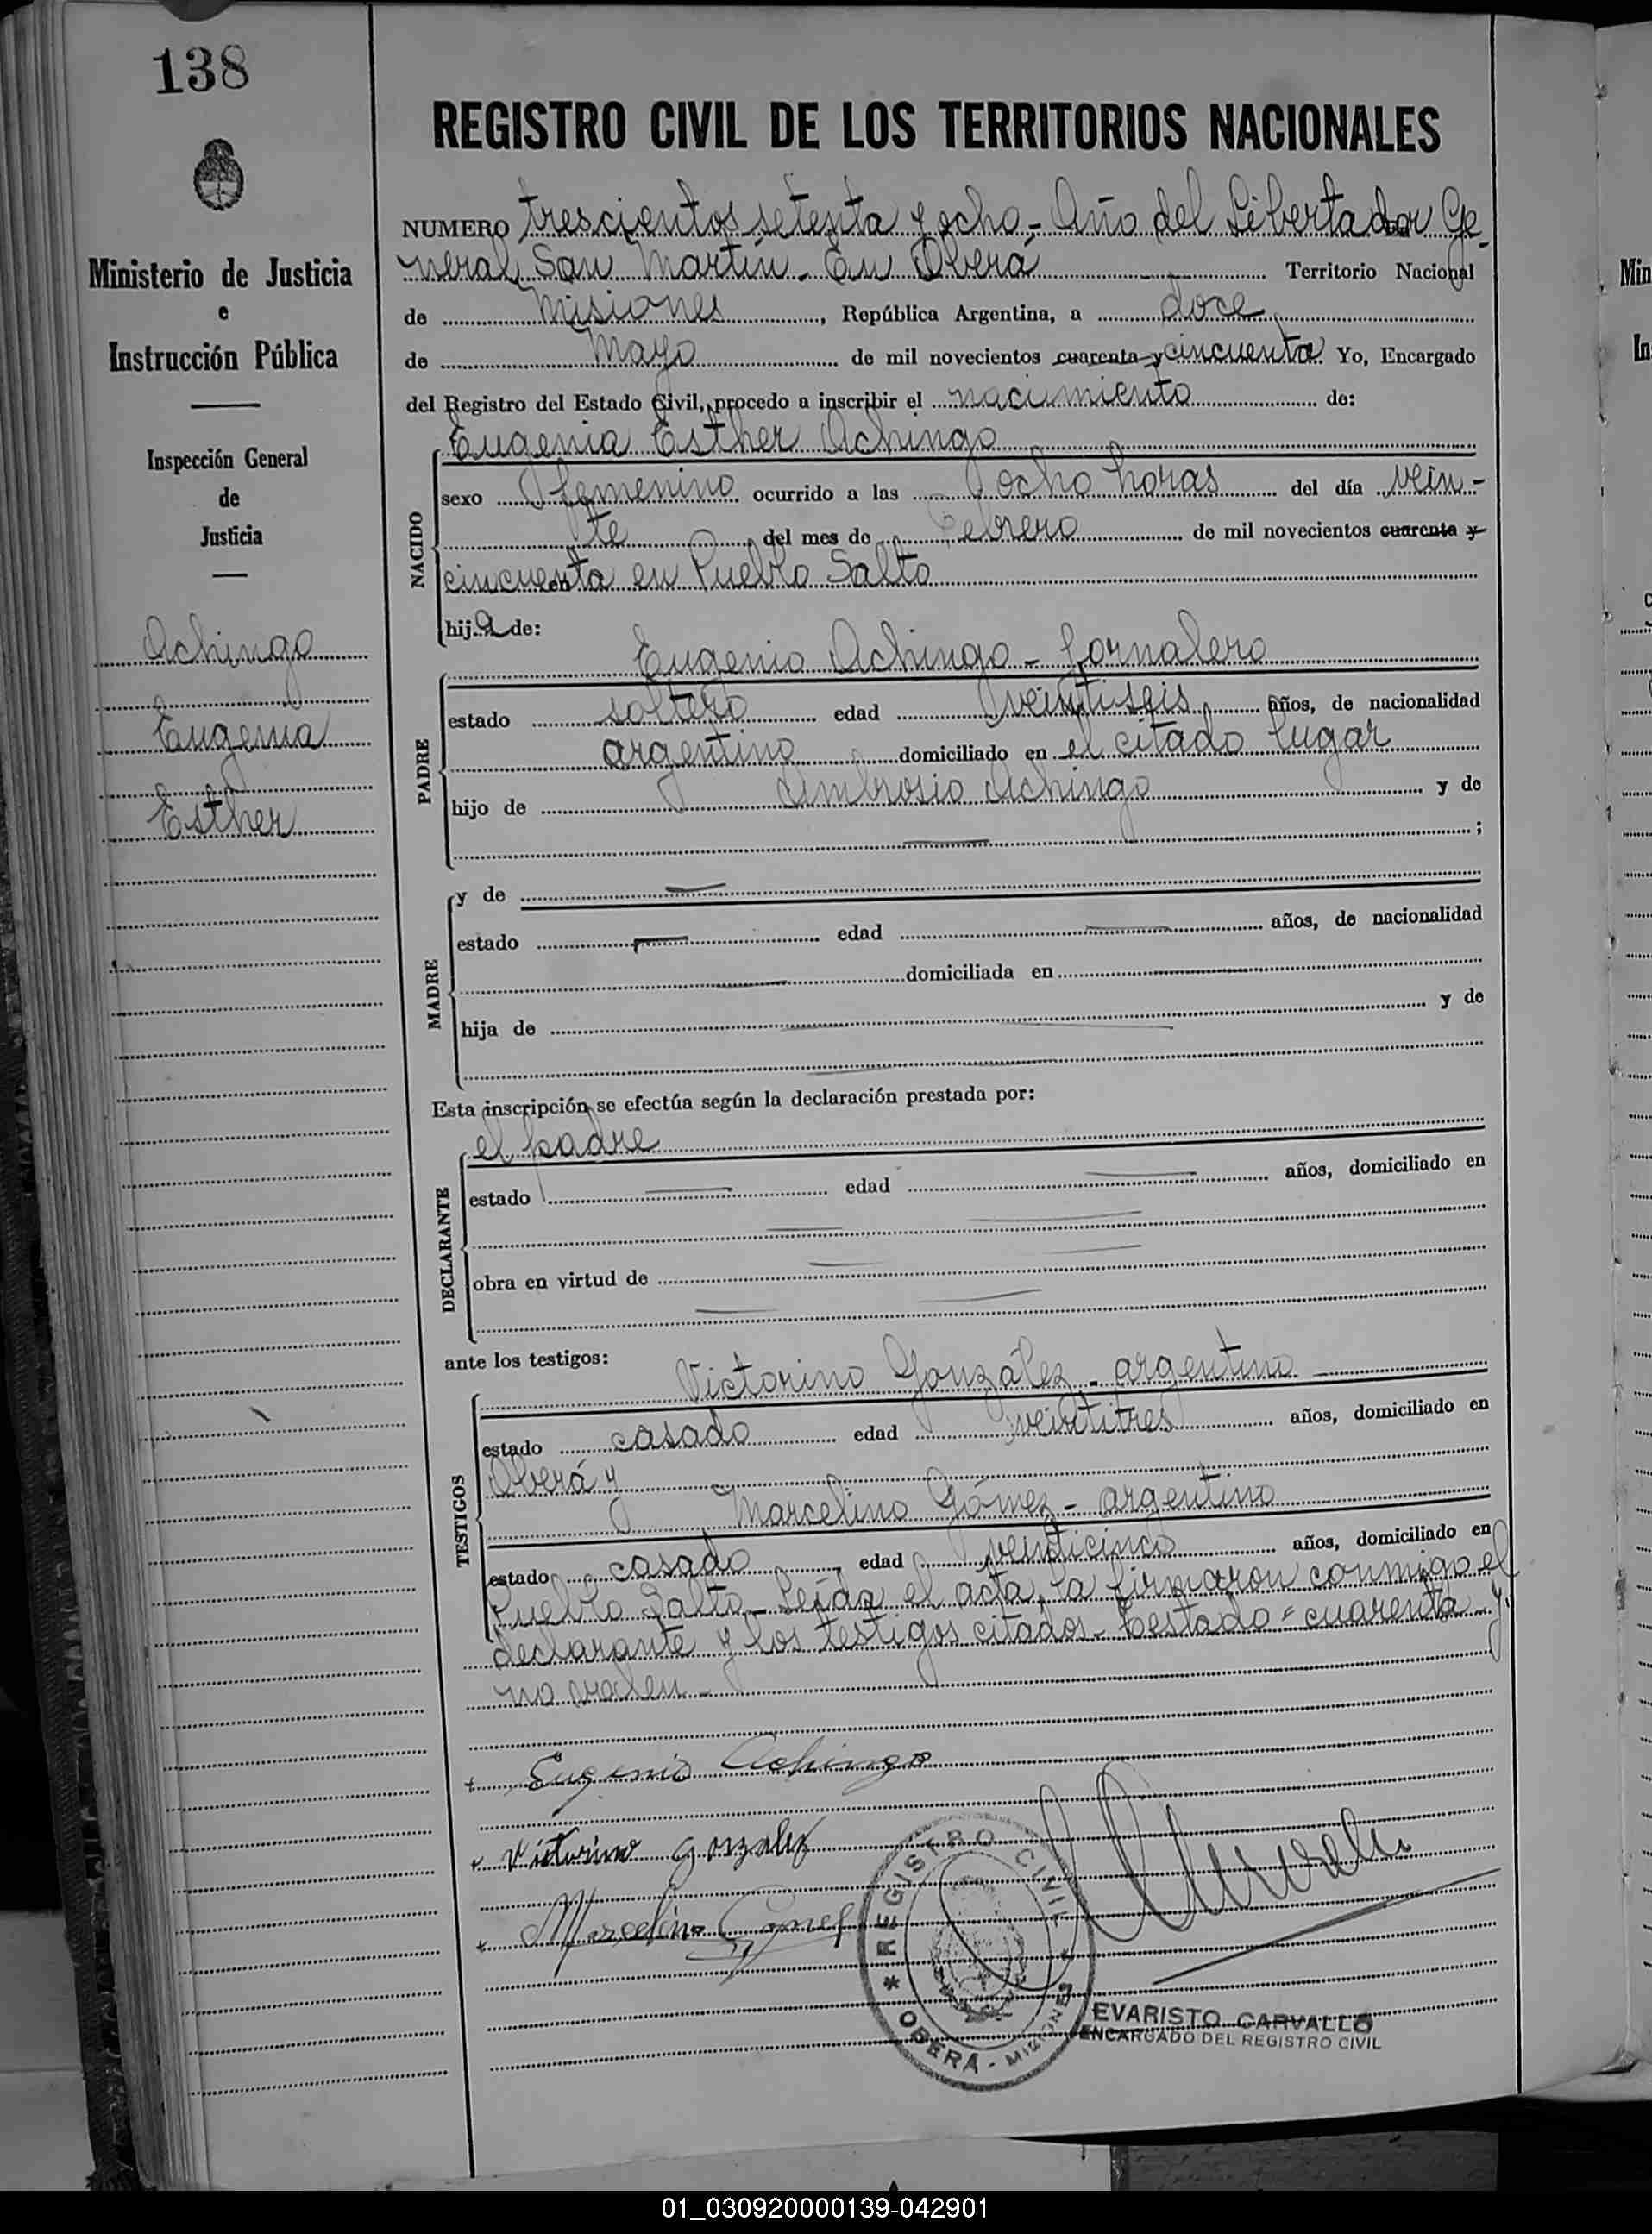 138
REGISTRO CIVIL DE LOS TERRITORIOS NACIONALES
Ministerio de Justicia
e
Instrucción Pública
Inspección General
de
Justicia
Achingo
Eugenia
Esther
NUMERO trescientos setenta y ocho - Año del Libertador Ge-
neral San Martín - En Oberá Territorio Nacional
de Misiones, República Argentina, a doce
de Mayo de mil novecientos cuarenta y cincuenta Yo, Encargado
del Registro del Estado Civil, procedo a inscribir el nacimiento de:
Eugenia Esther Achingo
NACIDO
sexo femenino ocurrido a las ocho horas del día vein-
te del mes de Febrero de mil novecientos cuarenta y
cincuenta en Pueblo Salto
hija de:
Eugenio Achingo - Jornalero
PADRE
estado soltero edad veintiseis años, de nacionalidad
argentino domiciliado en el citado lugar
hijo de Ambrosio Achingo y de
;
MADRE
y de
estado edad años, de nacionalidad
domiciliada en
hija de y de
Esta inscripción se efectúa según la declaración prestada por:
el padre
DECLARANTE
estado edad años, domiciliado en
obra en virtud de
ante los testigos:
Victorino González - argentino
TESTIGOS
estado casado edad veintitres años, domiciliado en
Oberá y
Marcelino Gómez - argentino
estado casado, edad veinticinco años, domiciliado en
Pueblo Salto - Leída el acta, la firmaron conmigo el
declarante y los testigos citados - Testado = cuarenta y
no valen -
Eugenio Achingo
Victorino Gonzalez
Marcelino Gomez
* REGISTRO CIVIL *
OBERÁ - MISIONES
EVARISTO CARVALLO
ENCARGADO DEL REGISTRO CIVIL
Min
In
01_030920000139-042901